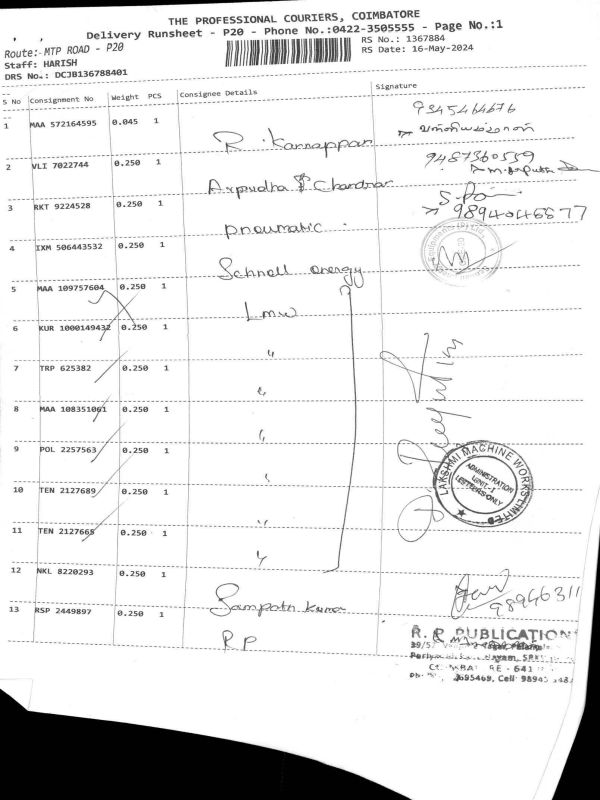 THE PROFESSIONAL COURIERS, COIMBATORE
Delivery Runsheet - P20 - Phone No.:0422-3505555 - Page No.:1
Route:- MTP ROAD - P20
RS No.: 1367884
Staff: HARISH
RS Date: 16-May-2024
DRS No.: DCJB136788401
S No Consignment No Weight PCS Consignee Details Signature
9345464676
1 MAA 572164595 0.045 1 R. Kannappan
9487360559
2 VLI 7022744 0.250 1 Arpudha Chandnar
3 RKT 9224528 0.250 1 Pneumatic 9894046877
4 IXM 506443532 0.250 1 Schnell energy
5 MAA 109757604 0.250 1 Lmw
6 KUR 1000149432 0.250 1 "
7 TRP 625382 0.250 1 "
8 MAA 108351061 0.250 1 "
9 POL 2257563 0.250 1 "
10 TEN 2127689 0.250 1 "
11 TEN 2127665 0.250 1 "
LAKSHMI MACHINE WORKS LIMITED
ADMINISTRATION
UNIT-I
LETTERS ONLY
12 NKL 8220293 0.250 1 Sampath Kumar 98946311
13 RSP 2449897 0.250 1 R P
R. R PUBLICATION